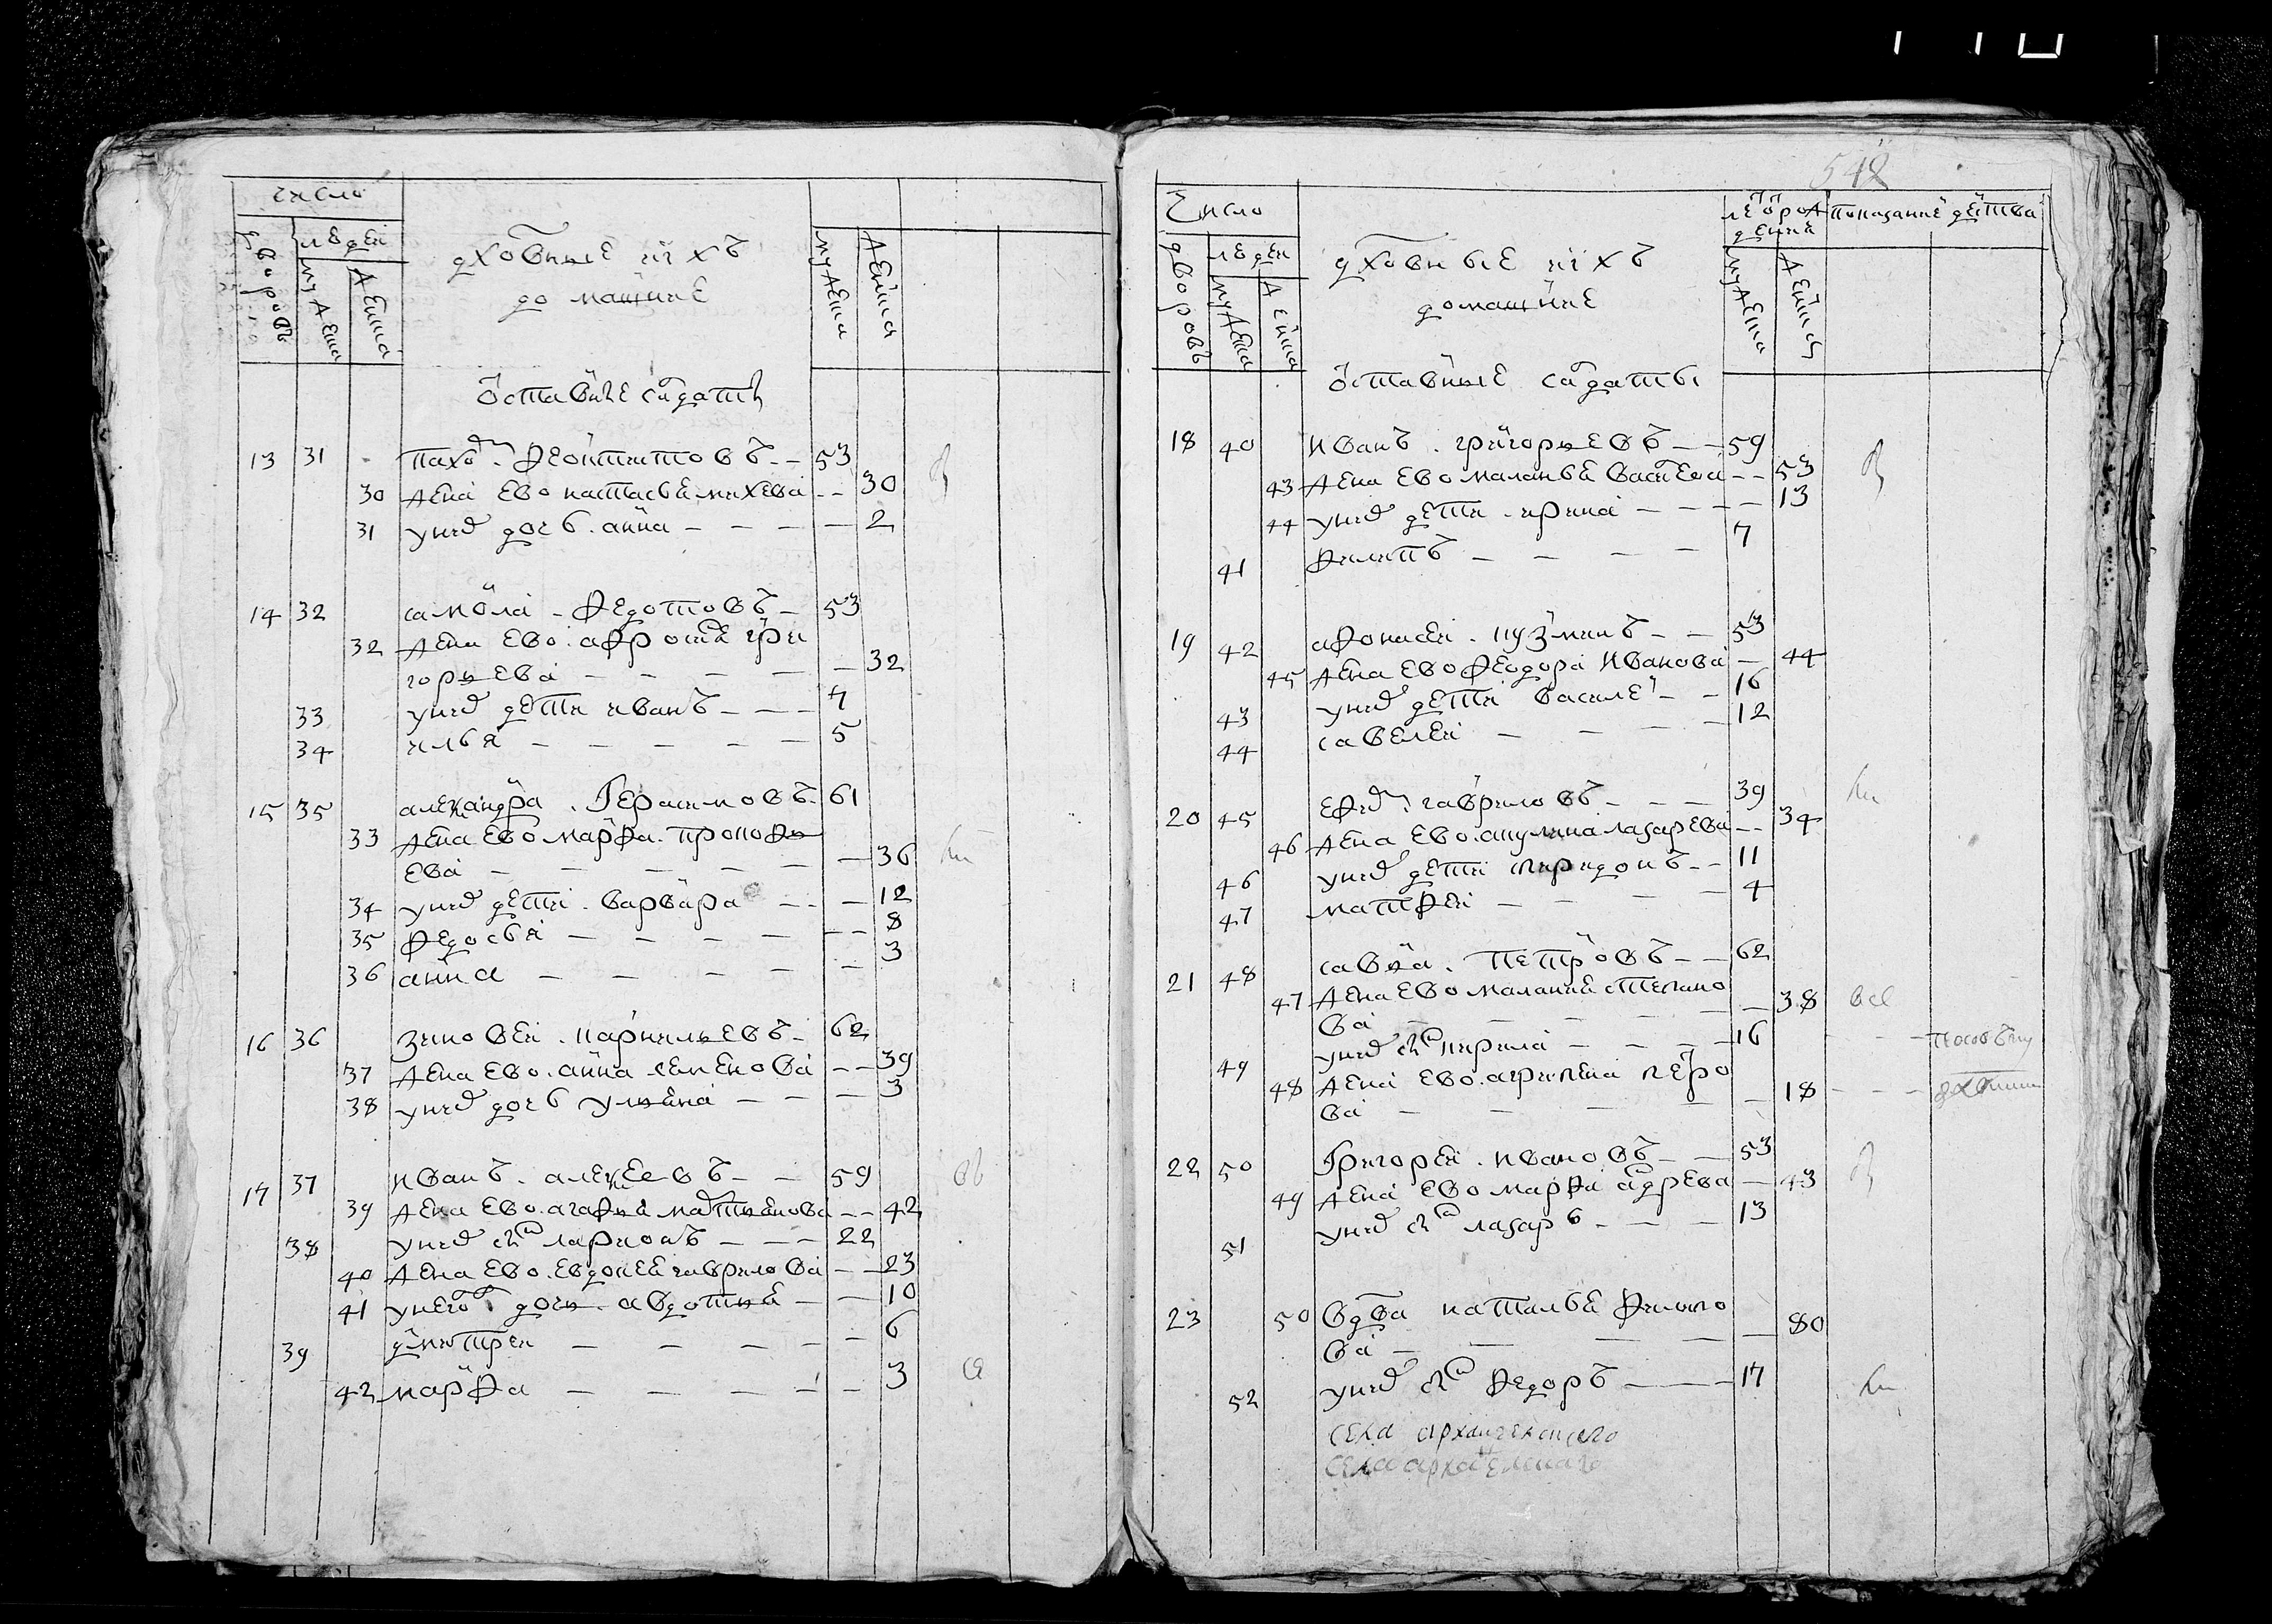 число
дворовъ
людеи
мужеска
женска
дховные ихъ
домашние
мужеска
женска
оставные салдаты
13 31 пахом феоктистовъ 53
30 жена ево настасья михева 30
31 у них дочь анна 2
14 32 самоила федотовъ 53
32 жена ево афросиня гри
горьева 32
33 у них дети иванъ 7
34 илья 5
15 35 александра герасимовъ 61
33 жена ево марфа прокофь
ева 36
34 у них дети варвара 12
35 федосья 8
36 анна 3
16 36 зиновеи карнильевъ 62
37 жена ево анна семенова 39
38 у них дочь ульяна 3
17 37 иванъ алексеевъ 59
39 жена ево агафья мартьянова 42
38 у них сын ларионъ 22
40 жена ево евдокея гаврилова 23
41 у него дочь авдотья 10
39 дмитреи 6
42 марфа 3
548
число
дворовъ
людеи
мужеска
женска
дховные ихъ
домашние
лета от рождения
мужеска
женска
показание действа
оставные салдаты
18 40 иванъ григорьевъ 59
43 жена ево маланья васильева 53
44 у них дети ирина 13
41 филипъ 7
19 42 афонасеи кузминъ 53
45 жена ево феодора иванова 44
43 у них дети василеи 16
44 савелеи 12
20 45 ефим гавриловъ 39
46 жена ево акулина лазарева 34
46 у них дети спиридонъ 11
47 матфеи 4
21 48 савва петровъ 62
47 жена ево маланья степано
ва 38
49 у них сын кирила 16
48 жена ево агрипена петро
ва 18
22 50 григореи ивановъ 53
49 жена ево марфа андреева 43
51 у них сын лазарь 13
23 50 вдова наталья филипо
ва 80
52 у них сын федоръ 17
села архангелскаго
села архангелскаго